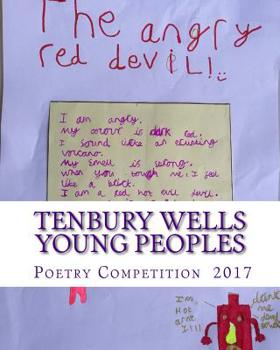 The angry
red devil!
I am angry.
My colour is dark red.
I sound like an erupting
volcano.
My smell is strong.
when you touch me, I feel
like a brick.
I am a red hot evil devil.
TENBURY WELLS
YOUNG PEOPLES
Poetry Competition 2017
I'm
Hot
arnt
I!!!